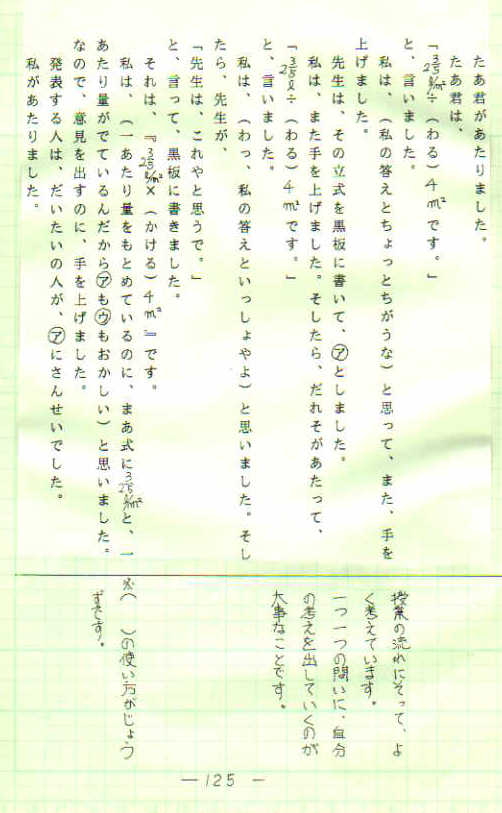 たあ君があたりました。
たあ君は、
「2 3/5 ℓ/m²÷(わる)4m²です。」
と、言いました。
私は、(私の答えとちょっとちがうな)と思って、また、手を
上げました。
先生は、その立式を黒板に書いて、㋐としました。
私は、また手を上げました。そしたら、だれそがあたって、
「2 3/5 ℓ÷(わる)4m²です。」
と、言いました。
私は、(わっ、私の答えといっしょやよ)と思いました。そし
たら、先生が、
「先生は、これやと思うで。」
と、言って、黒板に書きました。
それは、『2 3/5 ℓ/m²×(かける)4m²』です。
私は、(一あたり量をもとめているのに、まあ式に2 3/5 ℓ/m²と、一
あたり量がでているんだから㋐も㋒もおかしい)と思いました。
なので、意見を出すのに、手を上げました。
発表する人は、だいたいの人が、㋐にさんせいでした。
私があたりました。
授業の流れにそって、よ
く考えています。
一つ一つの問いに、自分
の考えを出していくのが
大事なことです。
※( )の使い方がじょう
ずです!。
— 125 —